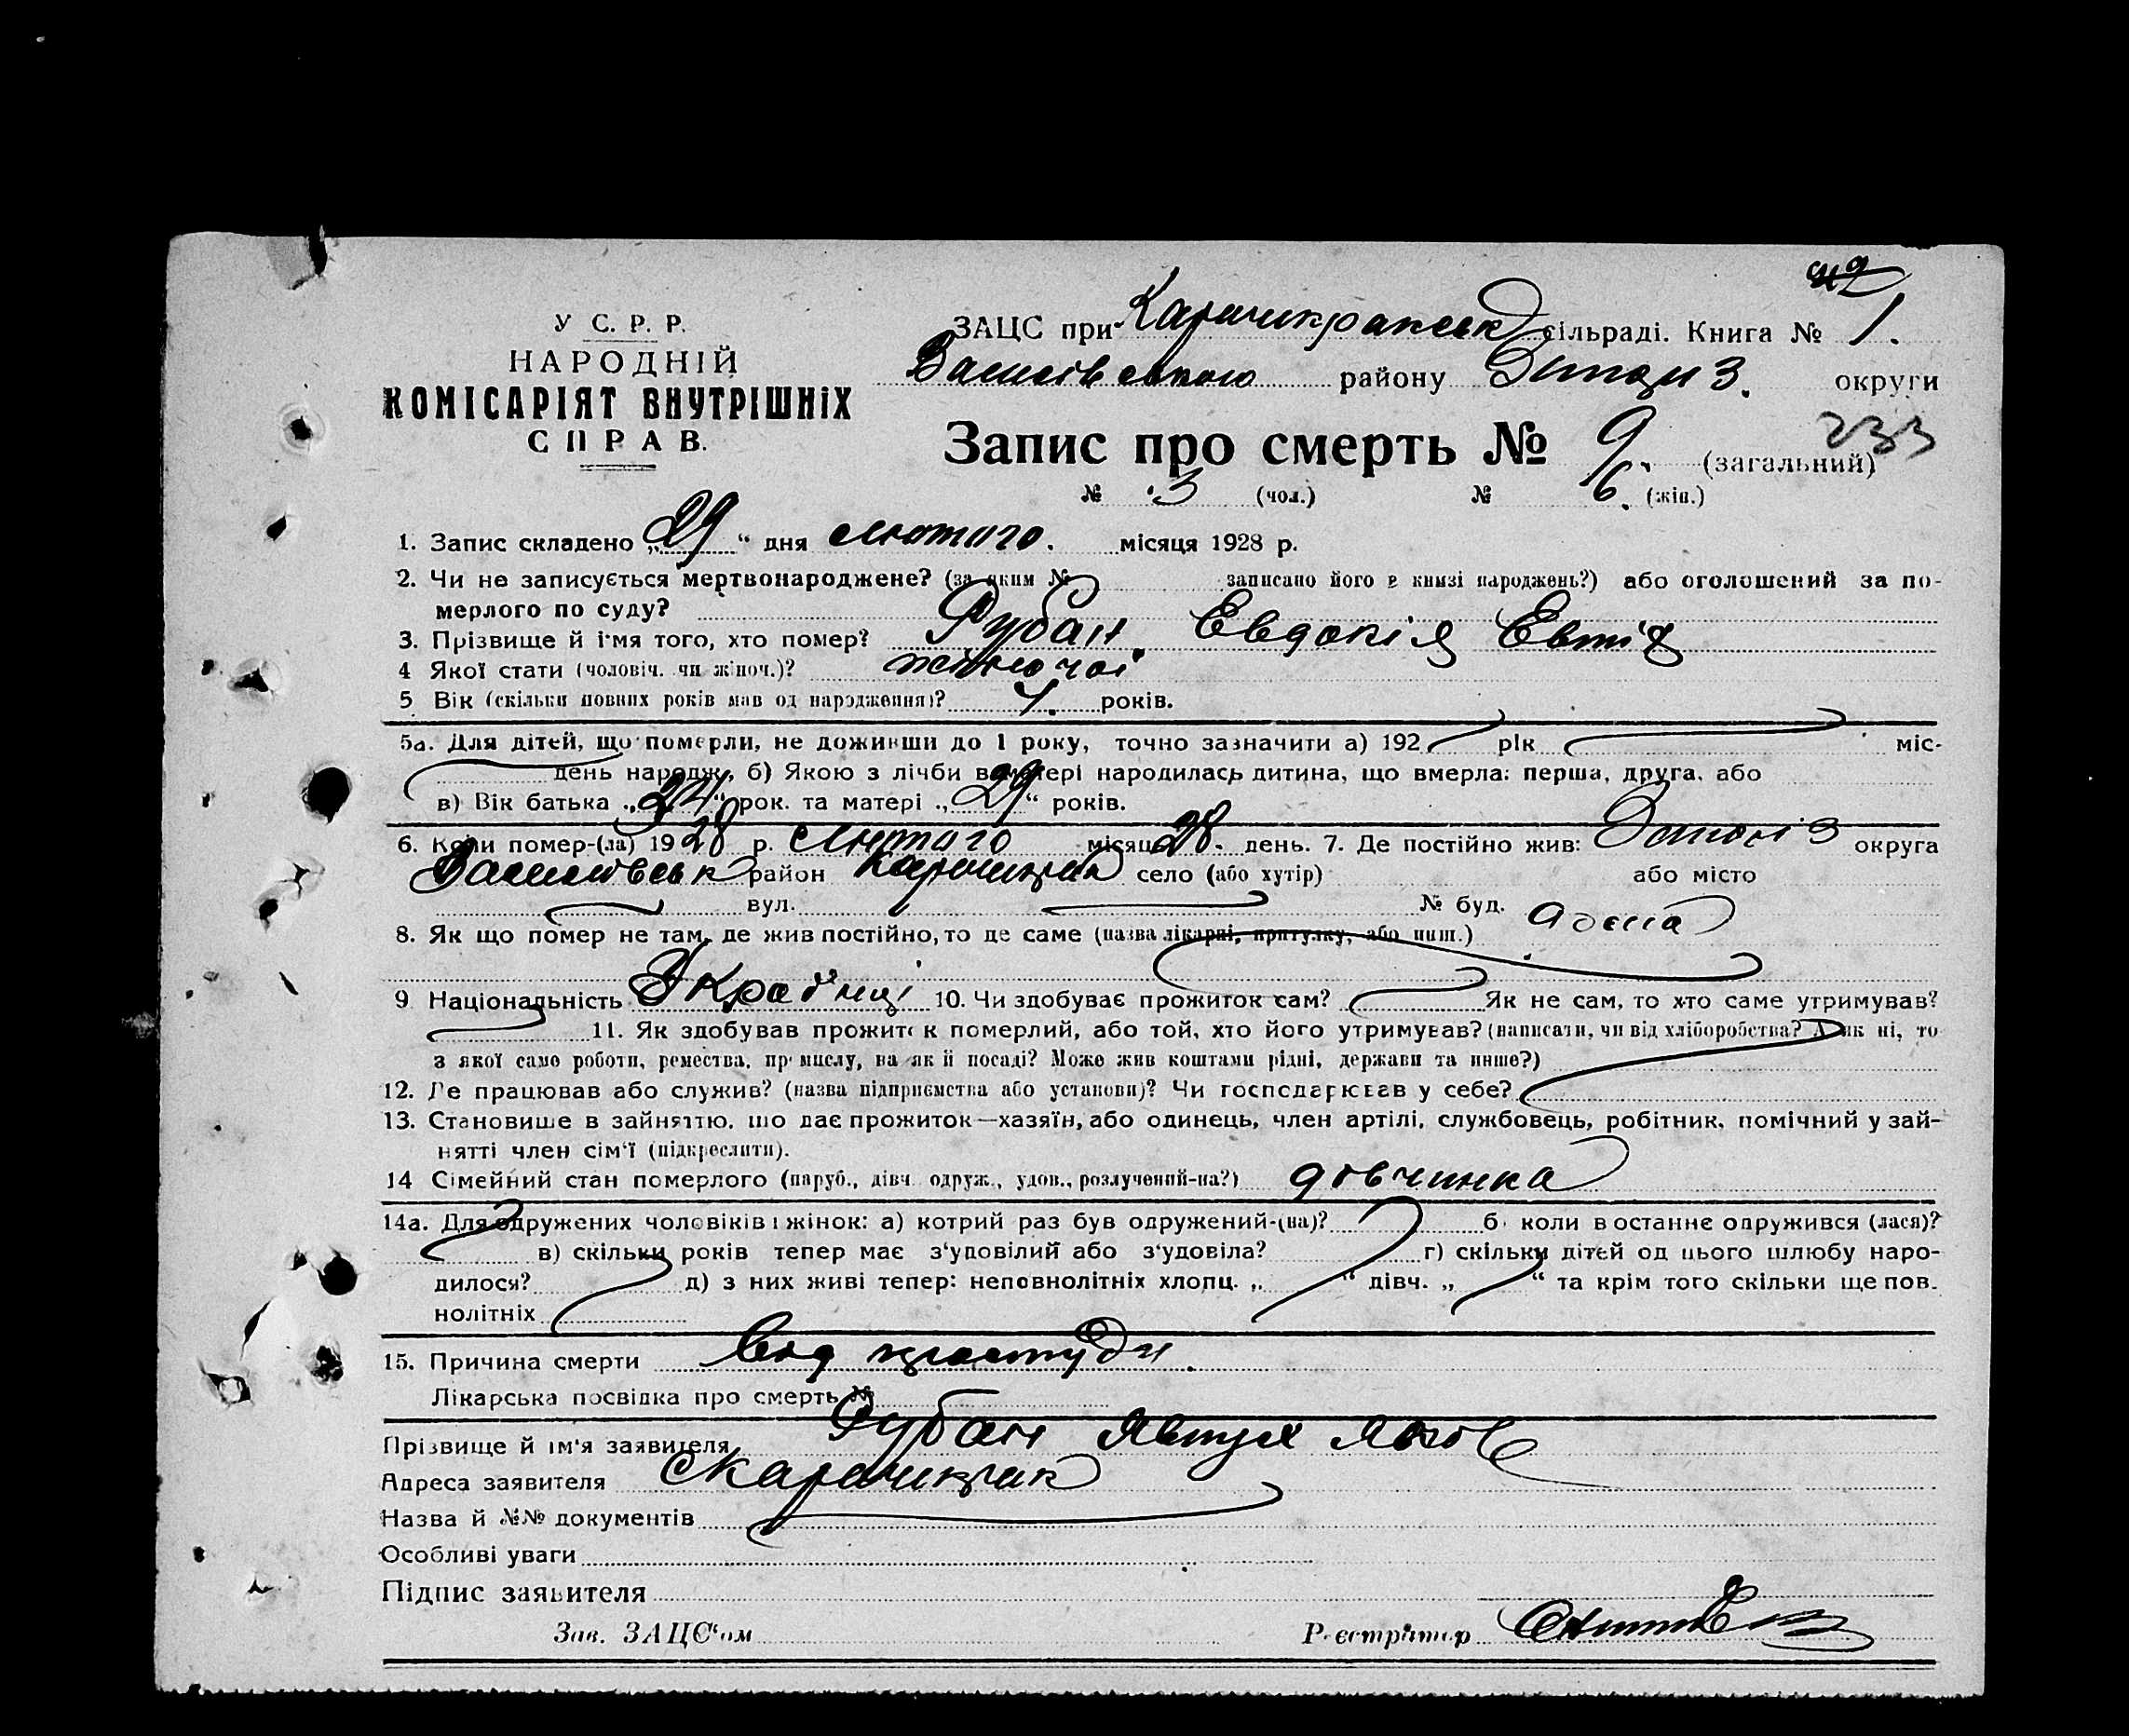 У С. Р. Р.
НАРОДНІЙ
КОМІСАРІЯТ ВНУТРІШНІХ
СПРАВ.
ЗАЦС при Карачикракськ сільраді. Книга № 1.
Василівського району Запоріз. округи
233
Запис про смерть № 9. (загальний)
№ 3 (чол.) № 6. (жін.)
1. Запис складено „29“ дня лютого. місяця 1928 р.
2. Чи не записується мертвонароджене? (за яким № записано його в книзі народжень?) або оголошений за по-
мерлого по суду?
3. Прізвище й ім'я того, хто помер? Рубан Евдокія Евтіх
4 Якої стати (чоловіч. чи жіноч.)? жіночої
5 Вік (скільки повних років мав од народження)? 1. років.
5а. Для дітей, що померли, не доживши до 1 року, точно зазначити а) 192 рік міс-
день народж., б) Якою з лічби в матері народилась дитина, що вмерла: перша, друга, або
в) Вік батька „34“ рок. та матері „29“ років.
6. Коли помер-(ла) 1928 р. лютого місяця 28. день. 7. Де постійно жив: Запоріз округа
Василівськ район Карачикрак село (або хутір) або місто
вул. № буд.
8. Як що помер не там, де жив постійно, то де саме (назва лікарні, притулку, або инш.) дома
9 Національність Українці 10. Чи здобуває прожиток сам? Як не сам, то хто саме утримував?
11. Як здобував прожиток померлий, або той, хто його утримував? (написати, чи від хліборобства? А як ні, то
з якої само роботи, ремества, промислу, на як й посаді? Може жив коштами рідні, держави та инше?)
12. Де працював або служив? (назва підприємства або установи)? Чи господарював у себе?
13. Становище в зайняттю, що дає прожиток—хазяїн, або одинець, член артілі, службовець, робітник, помічний у зай-
нятті член сім'ї (підкреслити).
14 Сімейний стан померлого (паруб., дівч. одруж., удов., розлучений-на?) дівчинка
14а. Для одружених чоловіків і жінок: а) котрий раз був одружений-(на)? б) коли в останнє одружився (лася)?
в) скільки років тепер має з'уповілий або з'удовіла? г) скільки дітей од цього шлюбу наро-
дилося? д) з них живі тепер: неповнолітніх хлопц. „ “ дівч. „ “ та крім того скільки ще пов.
нолітніх
15. Причина смерти від простуди.
Лікарська посвідка про смерть №
Прізвище й ім'я заявителя Рубан Явтух Яков
Адреса заявителя с Карачикрак
Назва й №№ документів
Особливі уваги
Підпис заявителя
Зав. ЗАЦС'ом Реєстратор